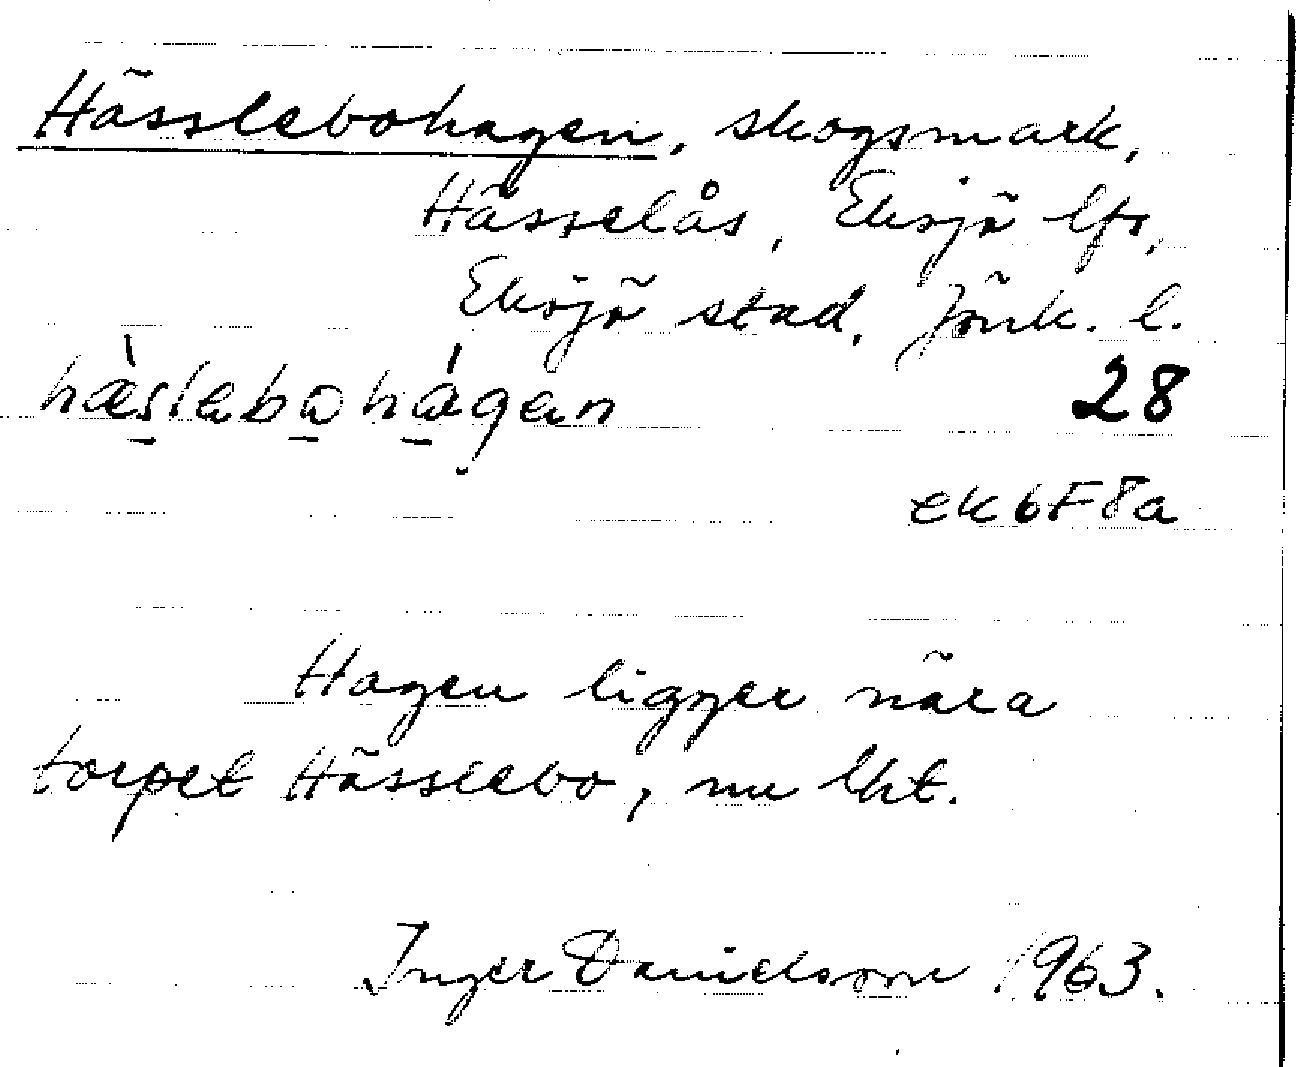 Hässlebohagen, skogsmark,
Hässelås, Eksjö lfs,
Eksjö stad, Jönk. l.
hæslebohagen 28
ek 6F8a
Hagen ligger nära
torpet Hässlebo, nu lht.
Inger Danielsson 1963.